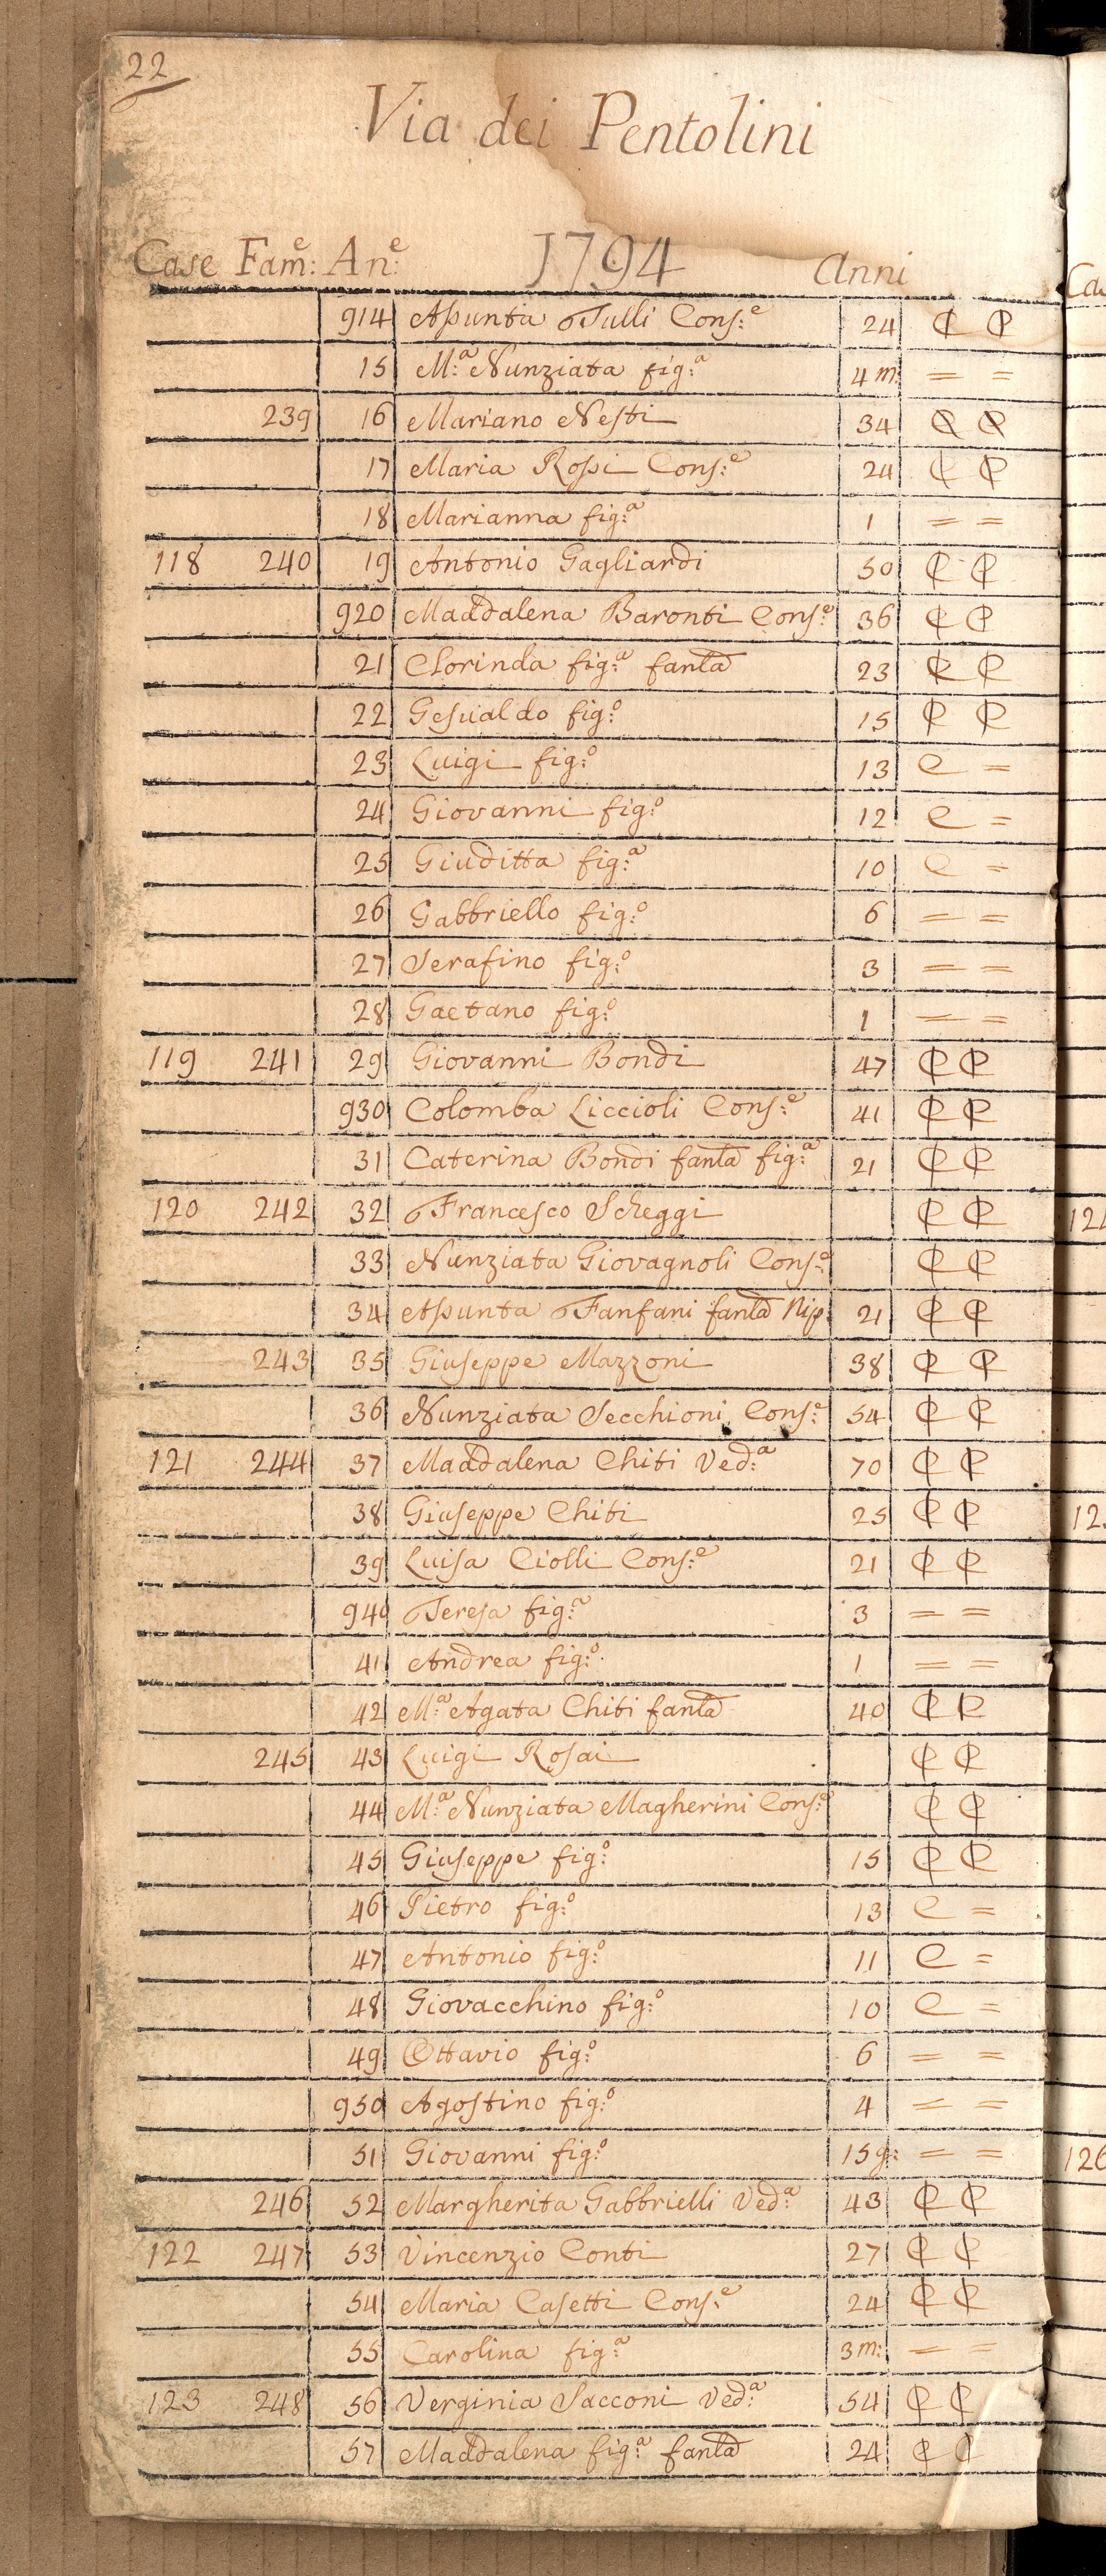 22
Via dei Pentolini
Case Fam:e An:e 1794 Anni
914 Aſsunta Tulli Conſ:e 24 C P
15 M:a Nunziata fig:a 4 m: = =
239 16 Mariano Neſti 34
17 Maria Roſsi Conſ:e 24 C P
18 Marianna fig:a 1 = =
118 240 19 Antonio Gagliardi 50 C P
920 Maddalena Baronti Conſ:e 36 C P
21 Clorinda fig:a fanla 23
22 Geſualdo fig:o 15
23 Luigi fig:o 13 C =
24 Giovanni fig:o 12 C =
25 Giuditta fig:a 10 C =
26 Gabbriello fig:o 6 = =
27 Serafino fig:o 3 = =
28 Gaetano fig:o 1 = =
119 241 29 Giovanni Bondi 47 C P
930 Colomba Liccioli Conſ:e 41 C P
31 Caterina Bondi fanla fig:a 21 C P
120 242 32 Franceſco Scheggi C P
33 Nunziata Giovagnoli Conſ:e C P
34 Aſsunta Fanfani fanla Nip: 21 C P
243 35 Giuſeppe Mazzoni 38 C P
36 Nunziata Secchioni Conſ:e 54 C P
121 244 37 Maddalena Chiti Ved:a 70 C P
38 Giuſeppe Chiti 25 C P
39 Luiſa Ciolli Conſ:e 21 C P
940 Tereſa fig:a 3 = =
41 Andrea fig:o 1 = =
42 M:a Agata Chiti fanla 40 C P
245 43 Luigi Roſai C P
44 M:a Nunziata Magherini Conſ:e C P
45 Giuſeppe fig:o 15 C P
46 Pietro fig:o 13 C =
47 Antonio fig:o 11 C =
48 Giovacchino fig:o 10 C =
49 Ottavio fig:o 6 = =
950 Agoſtino fig:o 4 = =
51 Giovanni fig:o 15 g: = =
246 52 Margherita Gabbrielli Ved:a 43 C P
122 247 53 Vincenzio Conti 27 C P
54 Maria Caſetti Conſ:e 24 C P
55 Carolina fig:a 3 m: = =
123 248 56 Verginia Sacconi Ved:a 54 C P
57 Maddalena fig:a fanla 24 C P